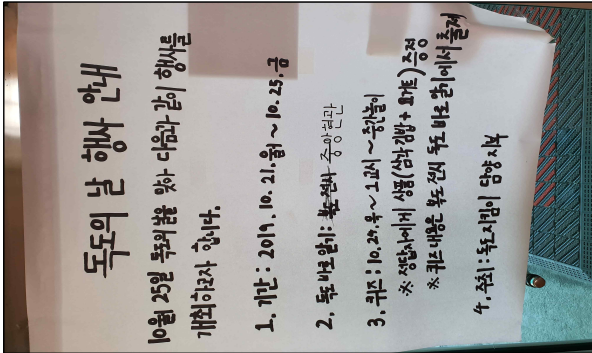 독도의 날 행사 안내
10월 25일 독도의 날을 맞아 다음과 같이 행사를
개최하고자 합니다.
1. 기간 : 2019. 10. 21. 월 ~ 10. 25. 금
2. 독도 바로 알기 : 복도 전시 중앙현관
3. 퀴즈 : 10. 24. 목 ~ 2교시 ~ 중간놀이
※ 정답자에게 상품(삼각김밥 + 요거트) 증정
※ 퀴즈 내용은 복도 전시 독도 바로 알기에서 출제
4. 주최 : 독도지킴이 담양지부